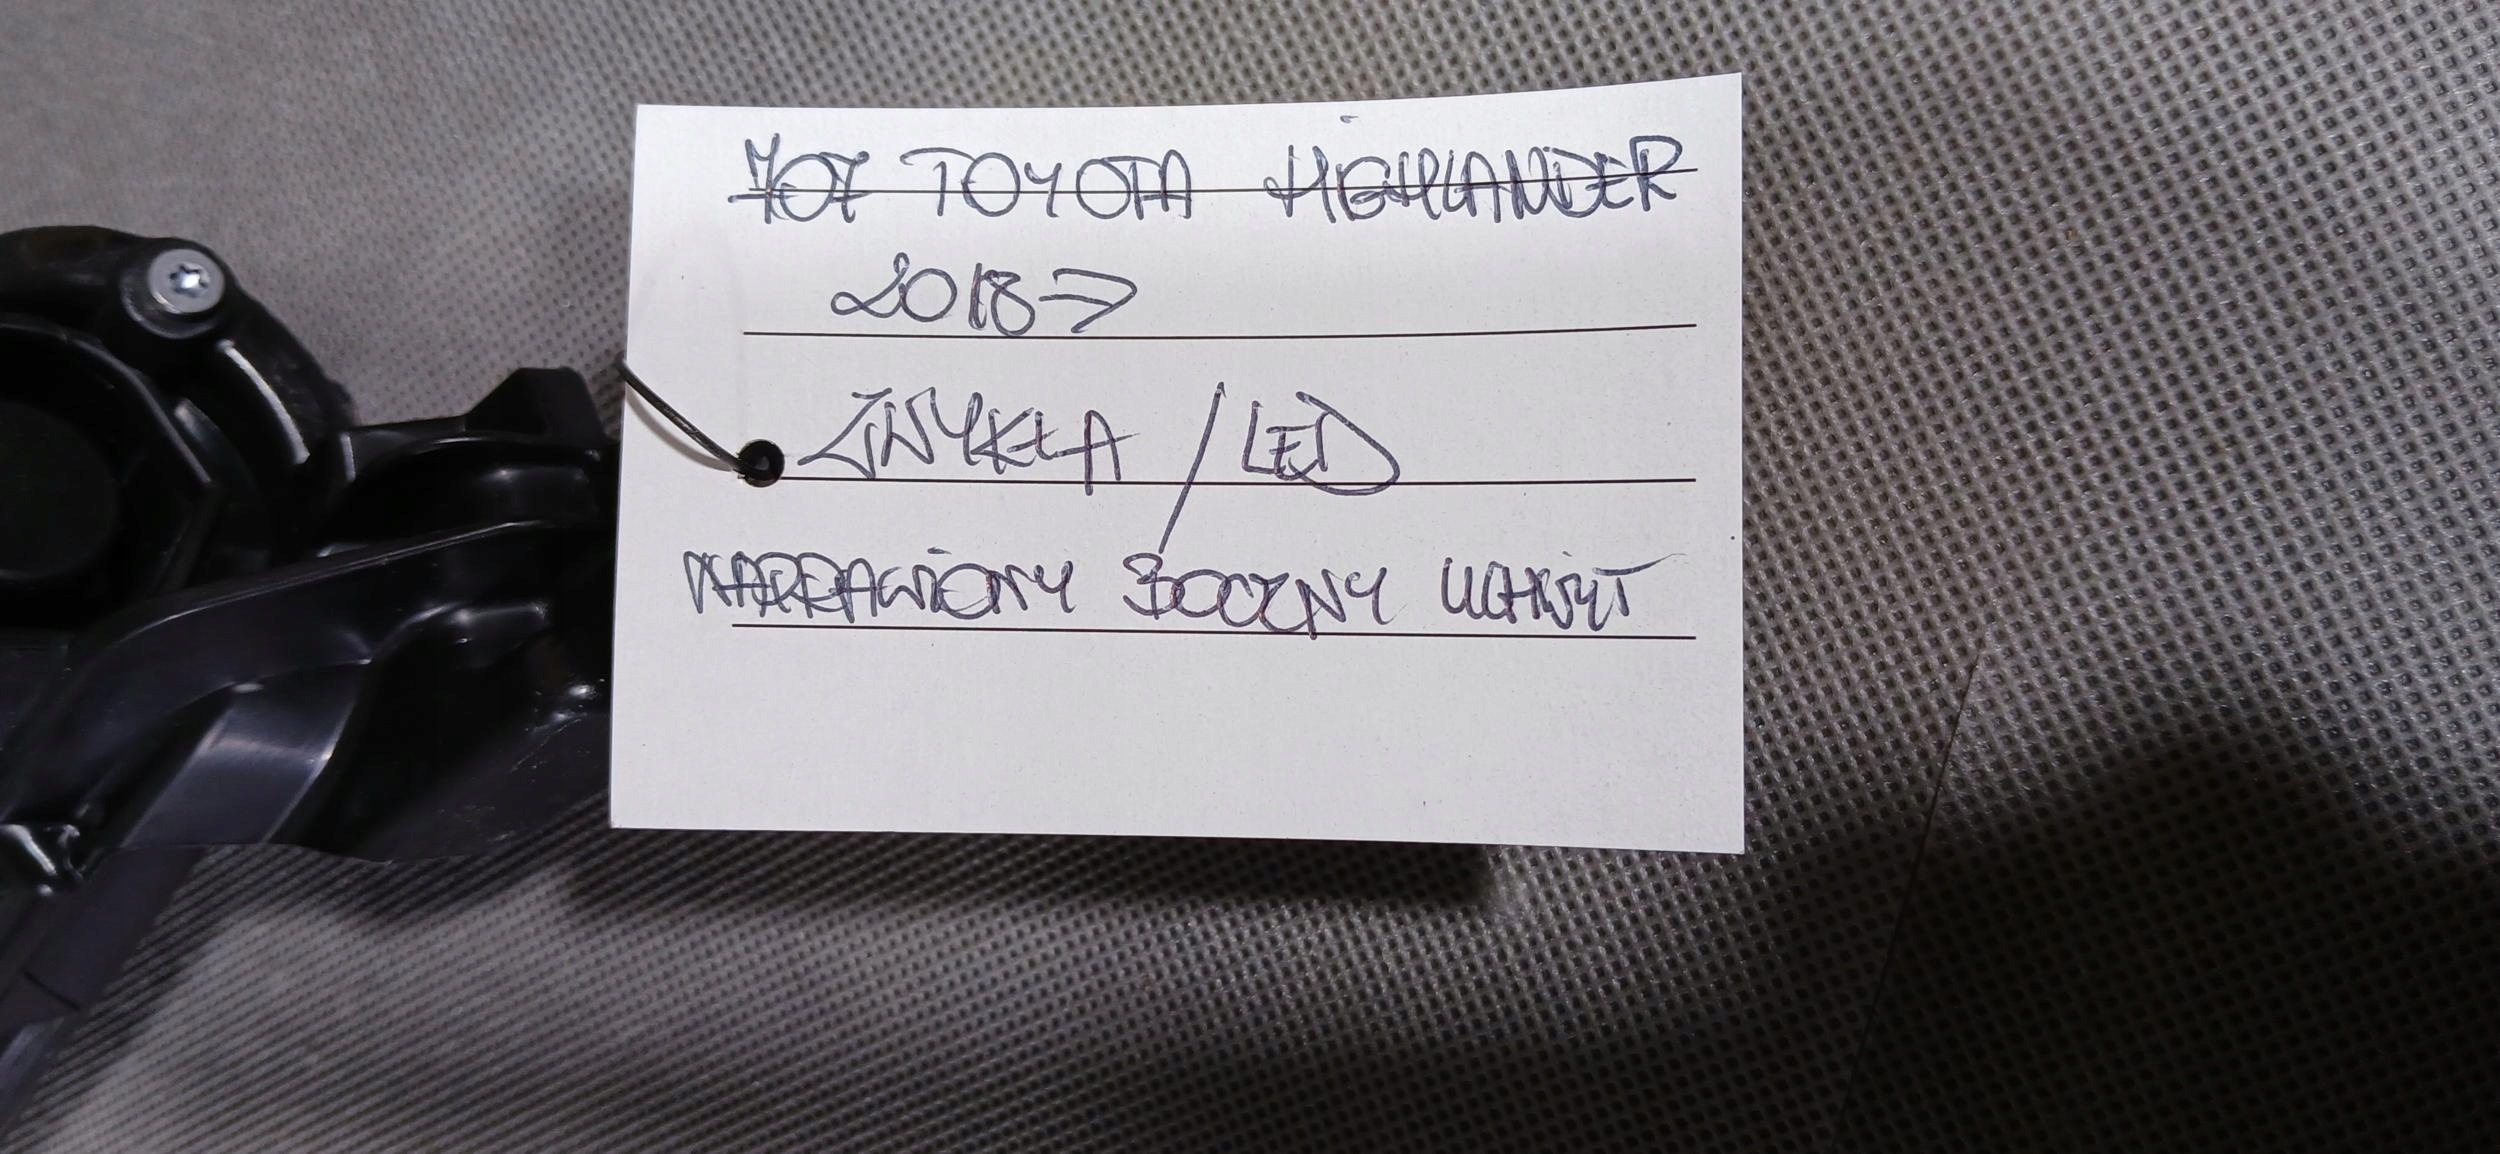 707 TOYOTA HIGHLANDER
2018->
ZWYKŁA / LED
NAPRAWIONY BOCZNY UCHWYT